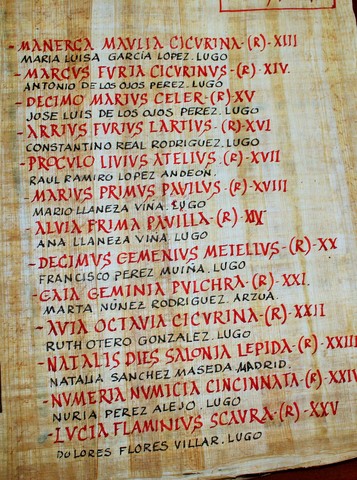 -MANERCA MAVLIA CICVRINA-(R)-XIII
MARIA LUISA GARCÍA LÓPEZ. LUGO
-MARCVS FVRIA CICVRINVS-(R)-XIV.
ANTONIO DE LOS OJOS PEREZ. LUGO
-DECIMO MARIVS CELER-(R)-XV
JOSE LUIS DE LOS OJOS PEREZ. LUGO
-ARRIVS FVRIVS LARTIVS-(R)-XVI
CONSTANTINO REAL RODRIGUEZ. LUGO
-PROCVLO LIVIVS ATELIVS-(R)-XVII
RAUL RAMIRO LOPEZ ANDEON.
-MARIVS PRIMVS PAVILVS-(R)-XVIII
MARIO LLANEZA VIÑA. LUGO
-ALVIA PRIMA PAVILLA-(R)-XIV
ANA LLANEZA VIÑA. LUGO
-DECIMVS GEMENIVS METELLVS-(R)-XX
FRANCISCO PEREZ MUIÑA. LUGO
-GAIA GEMINIA PVLCHRA-(R)-XXI.
MARTA NÚÑEZ RODRIGUEZ. ARZÚA.
-AVIA OCTAVIA CICVRINA-(R)-XXII
RUTH OTERO GONZALEZ. LUGO
-NATALIS DIES SALONIA LEPIDA-(R)-XXIII
NATALIA SANCHEZ MASEDA. MADRID.
-NVMERIA NVMICIA CINCINNATA-(R)-XXIV
NURIA PEREZ ALEJO. LUGO
-LVCIA FLAMINIVS SCAVRA-(R)-XXV
DOLORES FLORES VILLAR. LUGO